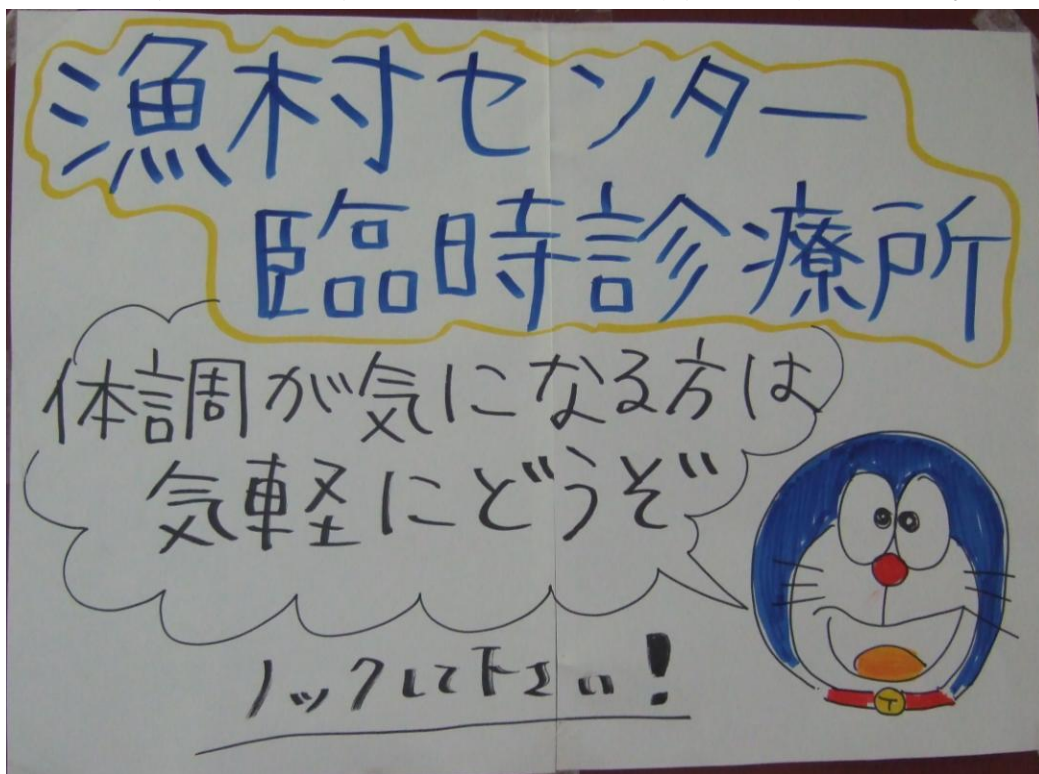 漁村センター
臨時診療所
体調が気になる方は
気軽にどうぞ
ノックして下さい!